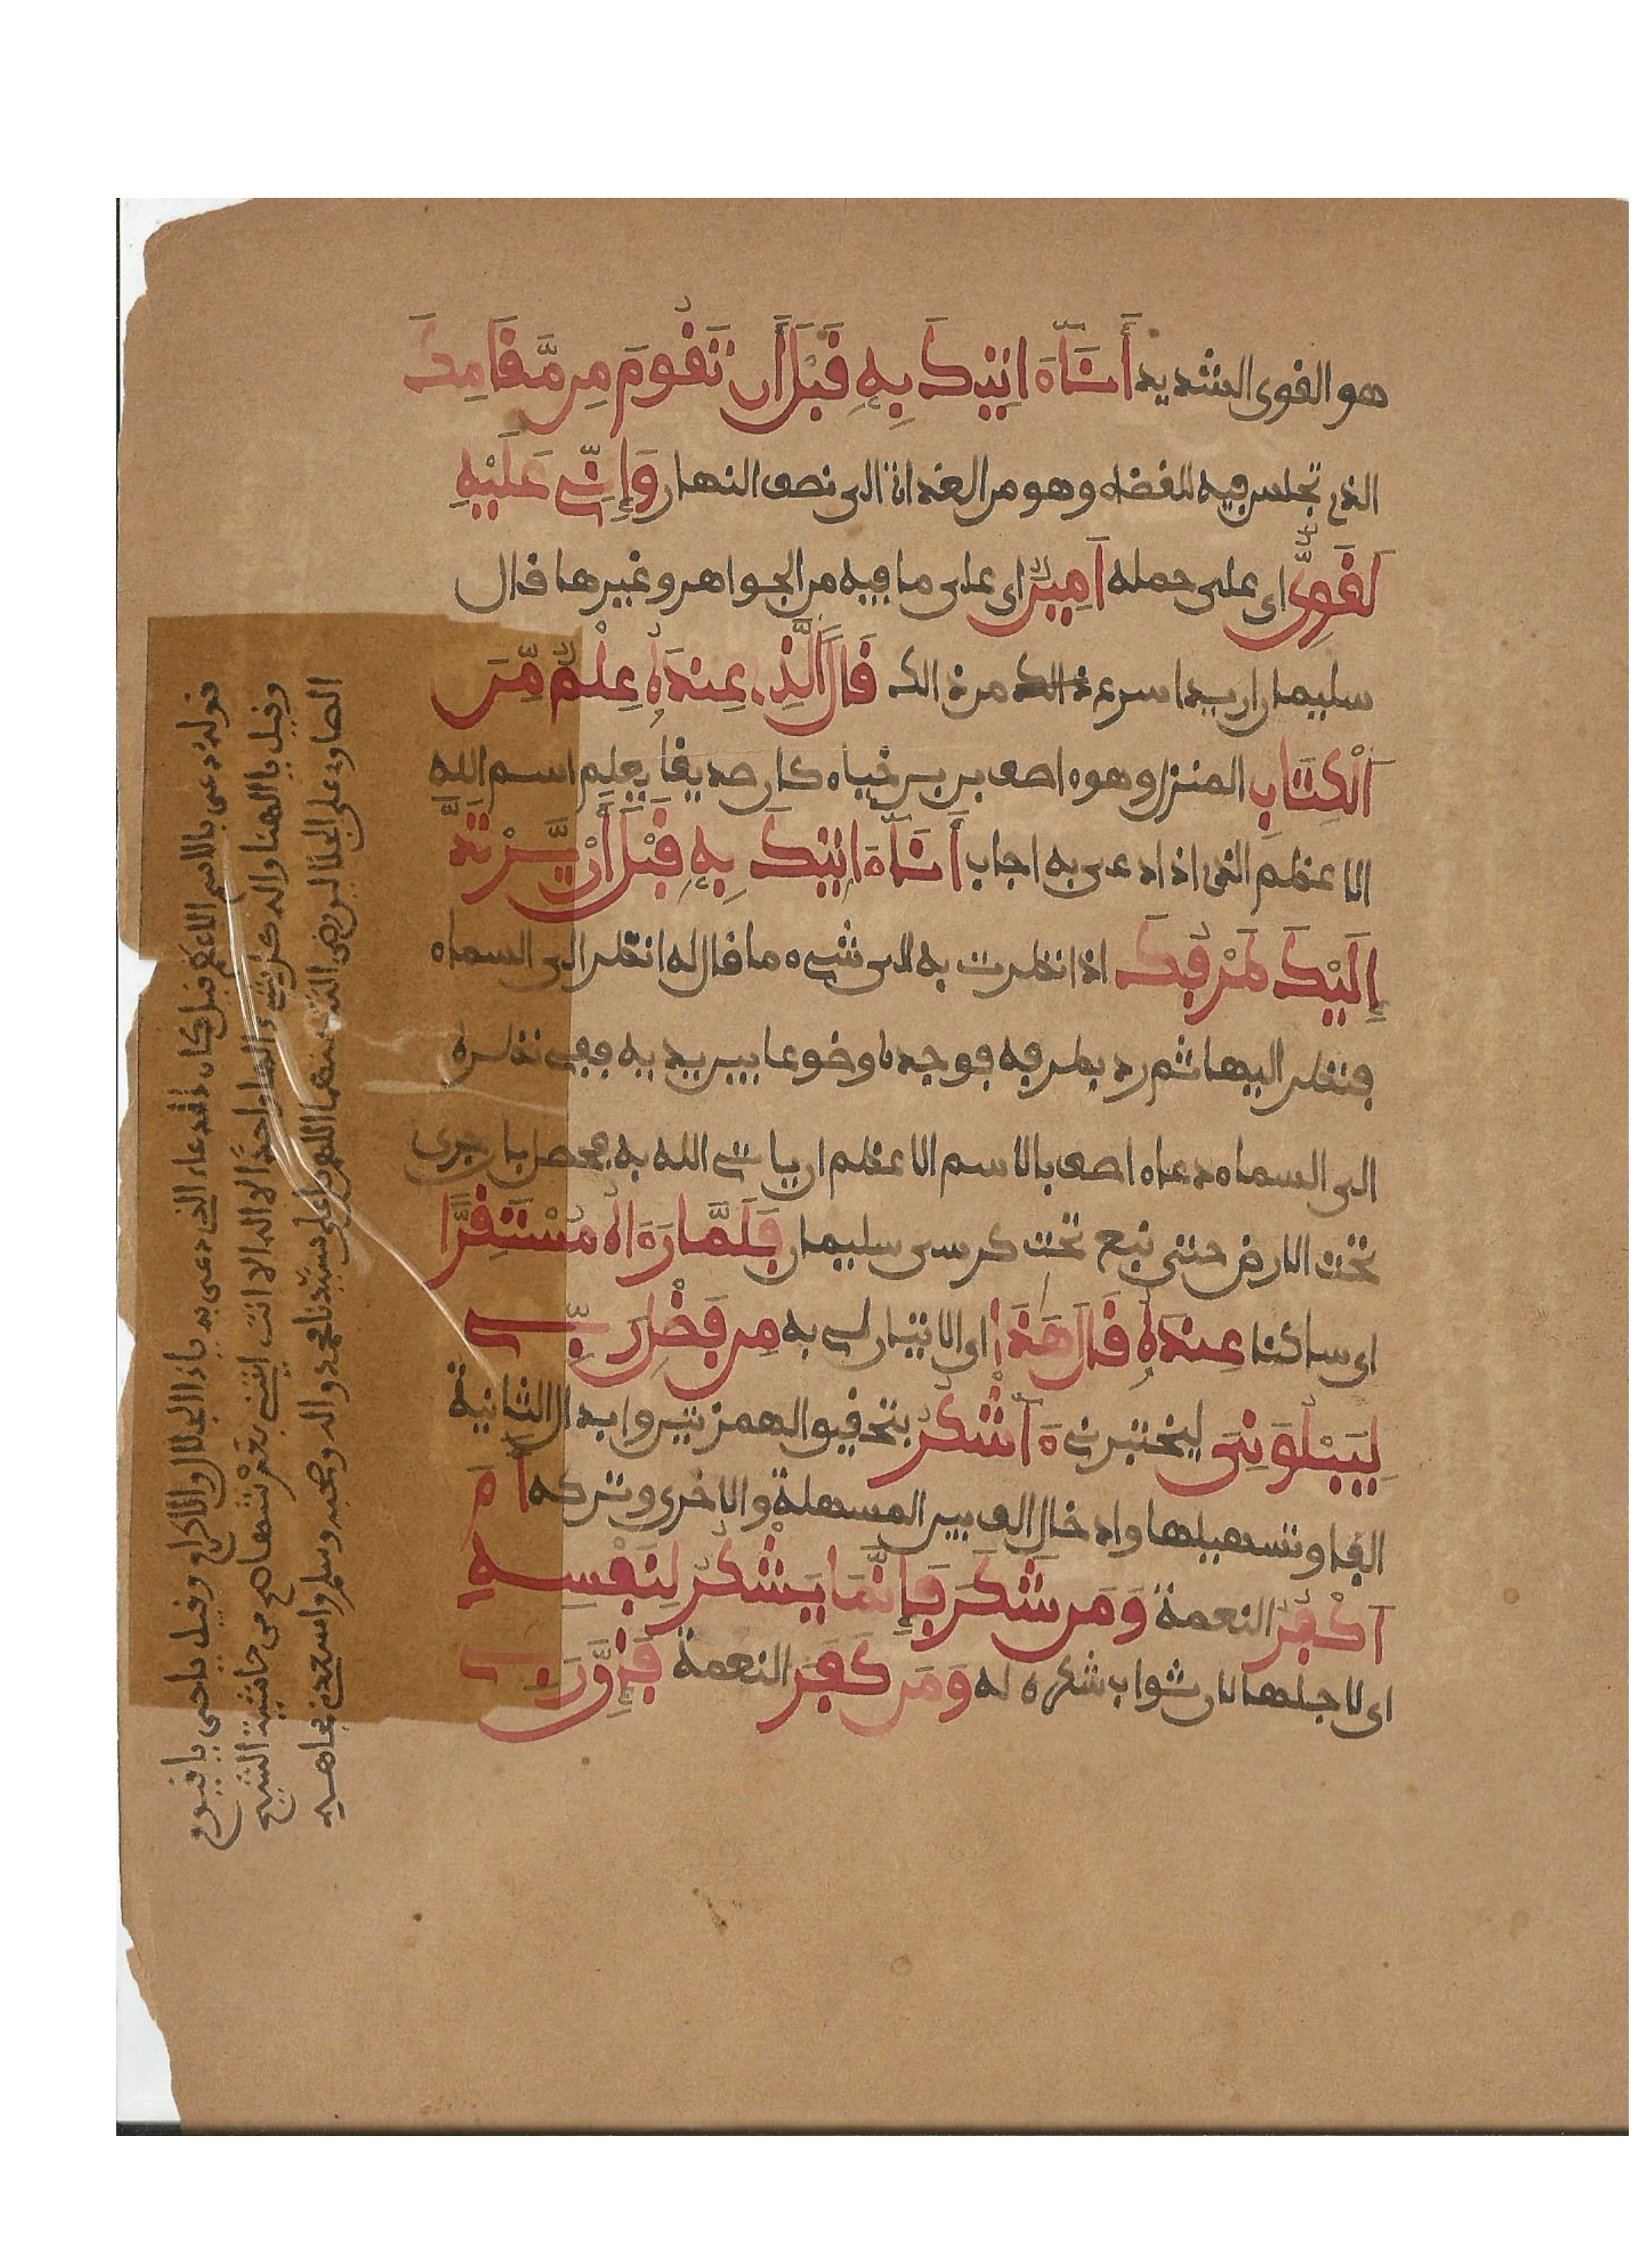 هو القوي الشديد أَنَا ءَاتِيكَ بِهِ قَبْلَ أَن تَقُومَ مِن مَّقَامِكَ
الذي تجلس فيه للقضاء وهو من الغداة الى نصف النهار وَإِنِّي عَلَيْهِ
لَقَوِيٌّ اي على حمله أَمِينٌ اي على ما فيه من الجواهر وغيرها قال
سليمان اريد اسرع من ذالك قَالَ الَّذِي عِندَهُ عِلْمٌ مِّنَ
الْكِتَابِ المنزل وهوه اصف بن برخياه كان صديقا يعلم اسم الله
الاعظم الذي اذا دعى به اجاب أَنَا ءَاتِيكَ بِهِ قَبْلَ أَنْ يَّرْتَدَّ
إِلَيْكَ طَرْفُكَ اذا نظرت به الى شيء ما قال له انظر الى السماء
فنظر اليها ثم رد بطرفه فوجده موضوعا بين يديه ففي نظره
الى السماء دعاه اصف بالاسم الاعظم ان ياتي الله به فحصل بان جرى
تحت الارض حتى نبع تحت كرسي سليمان فَلَمَّا رَءَاهُ مُسْتَقِرًّا
اي ساكنا عِندَهُ قَالَ هَذَا اي الاتيان لي به مِن فَضْلِ رَبِّي
لِيَبْلُوَنِي ليختبرني ءَأَشْكُرُ بتحقيق الهمزتين وابدال الثانية
الفا وتسهيلها وادخال الف بين المسهلة والاخرى وتركه أَمْ
أَكْفُرُ النعمة وَمَن شَكَرَ فَإِنَّمَا يَشْكُرُ لِنَفْسِهِ
اي لاجلها لان ثواب شكره له وَمَن كَفَرَ النعمة فَإِنَّ رَبِّي
قوله دعى بالاسم الاعظم قيل كان الدعاء الذي دعى به ياذا الجلال والاكرام وقيل ياحي يا قيوم
وقيل يا الهنا واله كل شيء الها واحدا لا اله الا انت ايتني بعرشها اهـ من حاشية الشيخ
الصاوي على الجلالين رضي الله عنهما اللهم صل على سيدنا محمد واله وصحبه وسلم